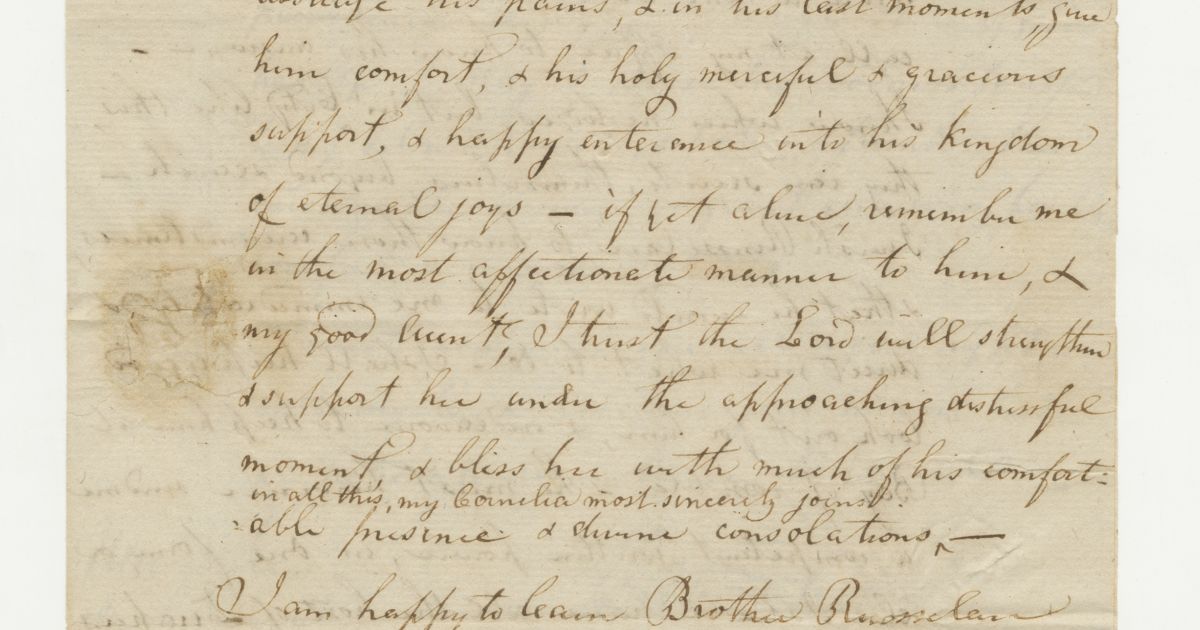 assuage his pains, & in his last moments, give
him comfort, & his holy merciful & gracious
support, & happy enterance into his kingdom
of eternal joys — if yet alive, remember me
in the most affectionate manner to him, &
my good Aunt, I trust the Lord will strengthen
& support her under the approaching distressful
moment, & bliss her with much of his comfort=
in all this, my Cornelia most sincerely joins.
=able presence & divine consolations, —
I am happy to learn Brother